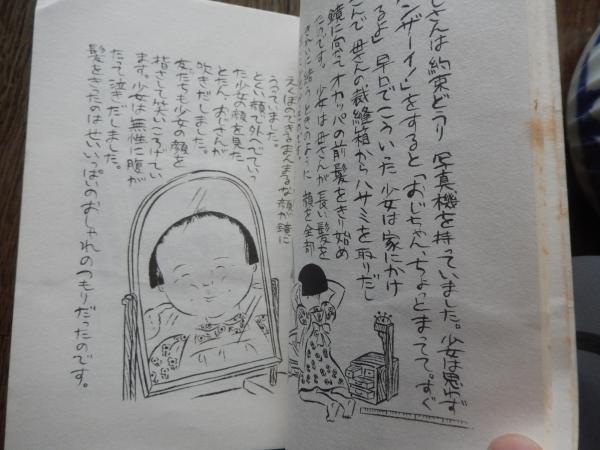 じさんは約束どうり 写真機を持っていました。少女は思わず
ンザーイ!」をすると「おじちゃん、ちょっとまってて。すぐ
るよ」早口でこういった少女は家にかけ
んで母さんの裁縫箱からハサミを取りだし
鏡に向ってオカッパの前髪をきり始め
たのです。少女は母さんが長い髪を
きれいに結うときのように 顔を全部
えくぼのできるまんまるな顔が鏡に
うつっていました。
とくい顔で外へでていっ
た少女の顔を見た
とたん、おじさんが
吹きだしました。
友たちも少女の顔を
指さして笑いころげてい
ます。少女は無性に腹が
たって泣きだしました。
髪をきったのはせいいっぱいのおしゃれのつもりだったのです。